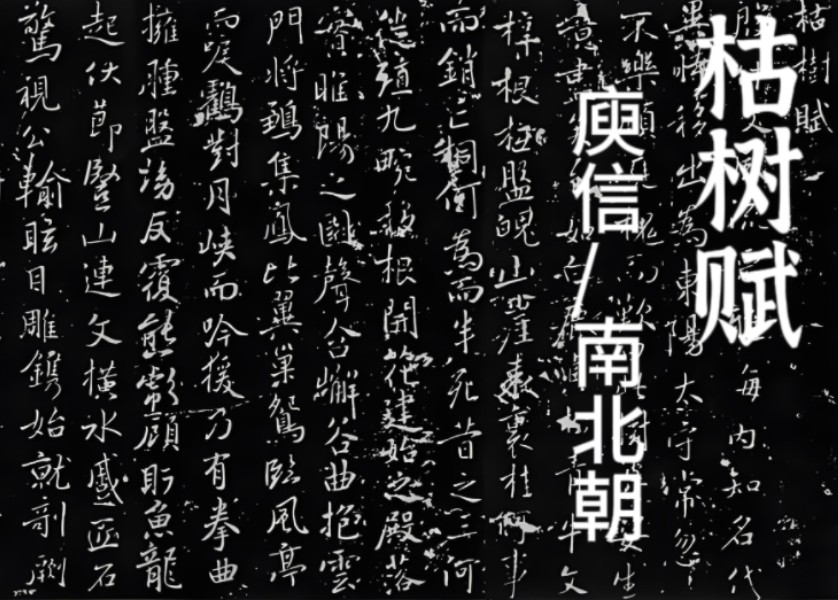 枯树赋
庾信/南北朝
枯樹賦
海内知名代
異時移出為東陽太守常忽
不樂顧庭槐而歎
意盡如白鹿青牛文
梓根柢盤魄山崖表裏桂何事
而銷亡桐何為而半死昔之三河
徙殖九畹移根開花建始之殿落
實睢陽之園聲含嶰谷曲抱雲
門將鵄集鳳比翼巢鴛臨風亭
而唳鶴對月峽而吟猨乃有拳曲
擁腫盤坳反覆熊彪顧盻魚龍
起伏節豎山連文橫水蹙匠石
驚視公輸眩目雕鐫始就剞劂